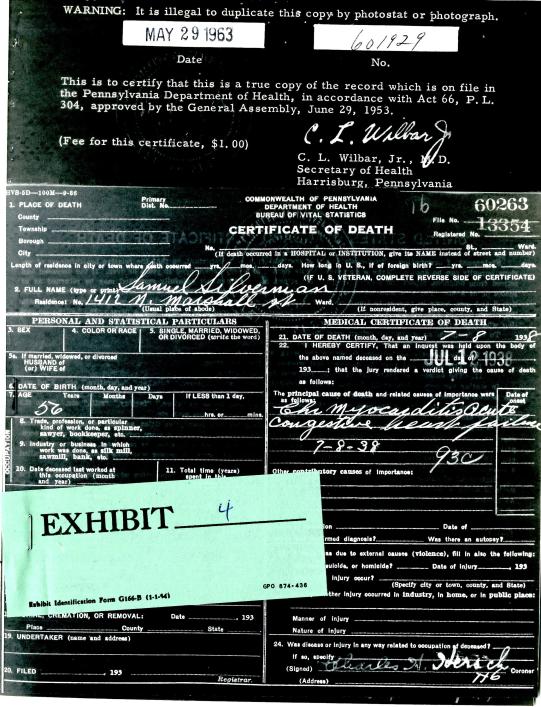 WARNING: It is illegal to duplicate this copy by photostat or photograph.
MAY 29 1963
601929
Date
No.
This is to certify that this is a true copy of the record which is on file in
the Pennsylvania Department of Health, in accordance with Act 66, P. L.
304, approved by the General Assembly, June 29, 1953.
(Fee for this certificate, $1.00)
C. L. Wilbar Jr
C. L. Wilbar, Jr., M.D.
Secretary of Health
Harrisburg, Pennsylvania
HVS-5D—100M—9-56
1. PLACE OF DEATH
County
Township
Borough
City
Primary
Dist. No.
COMMONWEALTH OF PENNSYLVANIA
DEPARTMENT OF HEALTH
BUREAU OF VITAL STATISTICS
CERTIFICATE OF DEATH
16
60263
File No.
13354
Registered No.
No. St., Ward.
(If death occurred in a HOSPITAL or INSTITUTION, give its NAME instead of street and number)
Length of residence in city or town where death occurred yrs. mos. days. How long in U. S., if of foreign birth? yrs. mos. days.
(IF U. S. VETERAN, COMPLETE REVERSE SIDE OF CERTIFICATE)
2. FULL NAME (type or print) Samuel Silverman
Residence: No. 1412 N. Marshall St Ward.
(Usual place of abode) (If nonresident, give place, county, and State)
PERSONAL AND STATISTICAL PARTICULARS
3. SEX
4. COLOR OR RACE
5. SINGLE, MARRIED, WIDOWED,
OR DIVORCED (write the word)
5a. If married, widowed, or divorced
HUSBAND of
(or) WIFE of
6. DATE OF BIRTH (month, day, and year)
7. AGE Years Months Days If LESS than 1 day,
56
hrs. or mins.
OCCUPATION
8. Trade, profession, or particular
kind of work done, as spinner,
sawyer, bookkeeper, etc.
9. Industry or business in which
work was done, as silk mill,
sawmill, bank, etc.
10. Date deceased last worked at
this occupation (month
and year)
11. Total time (years)
spent in this
EXHIBIT 4
GPO 874-436
Exhibit Identification Form G166-B (1-1-64)
CREMATION, OR REMOVAL: Date 193
Place County State
19. UNDERTAKER (name and address)
20. FILED 193
Registrar.
MEDICAL CERTIFICATE OF DEATH
21. DATE OF DEATH (month, day, and year) 7-8 1938
22. I HEREBY CERTIFY, That an inquest was held upon the body of
the above named deceased on the JUL 12 1938
193 ; that the jury rendered a verdict giving the cause of death
as follows:
The principal cause of death and related causes of importance were
as follows:
Date of
onset
Chr Myocarditis Acute
Congestive heart failure
7-8-38
93C
Other contributory causes of importance:
Date of
rmed diagnosis? Was there an autopsy?
as due to external causes (violence), fill in also the following:
suicide, or homicide? Date of injury 193
injury occur?
(Specify city or town, county, and State)
ther injury occurred in industry, in home, or in public place:
Manner of injury
Nature of injury
24. Was disease or injury in any way related to occupation of deceased?
If so, specify
(Signed) Charles H. Hersch Coroner
(Address)